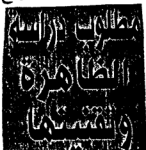 مطلوب دراسة
الظاهرة
وتفسيرها